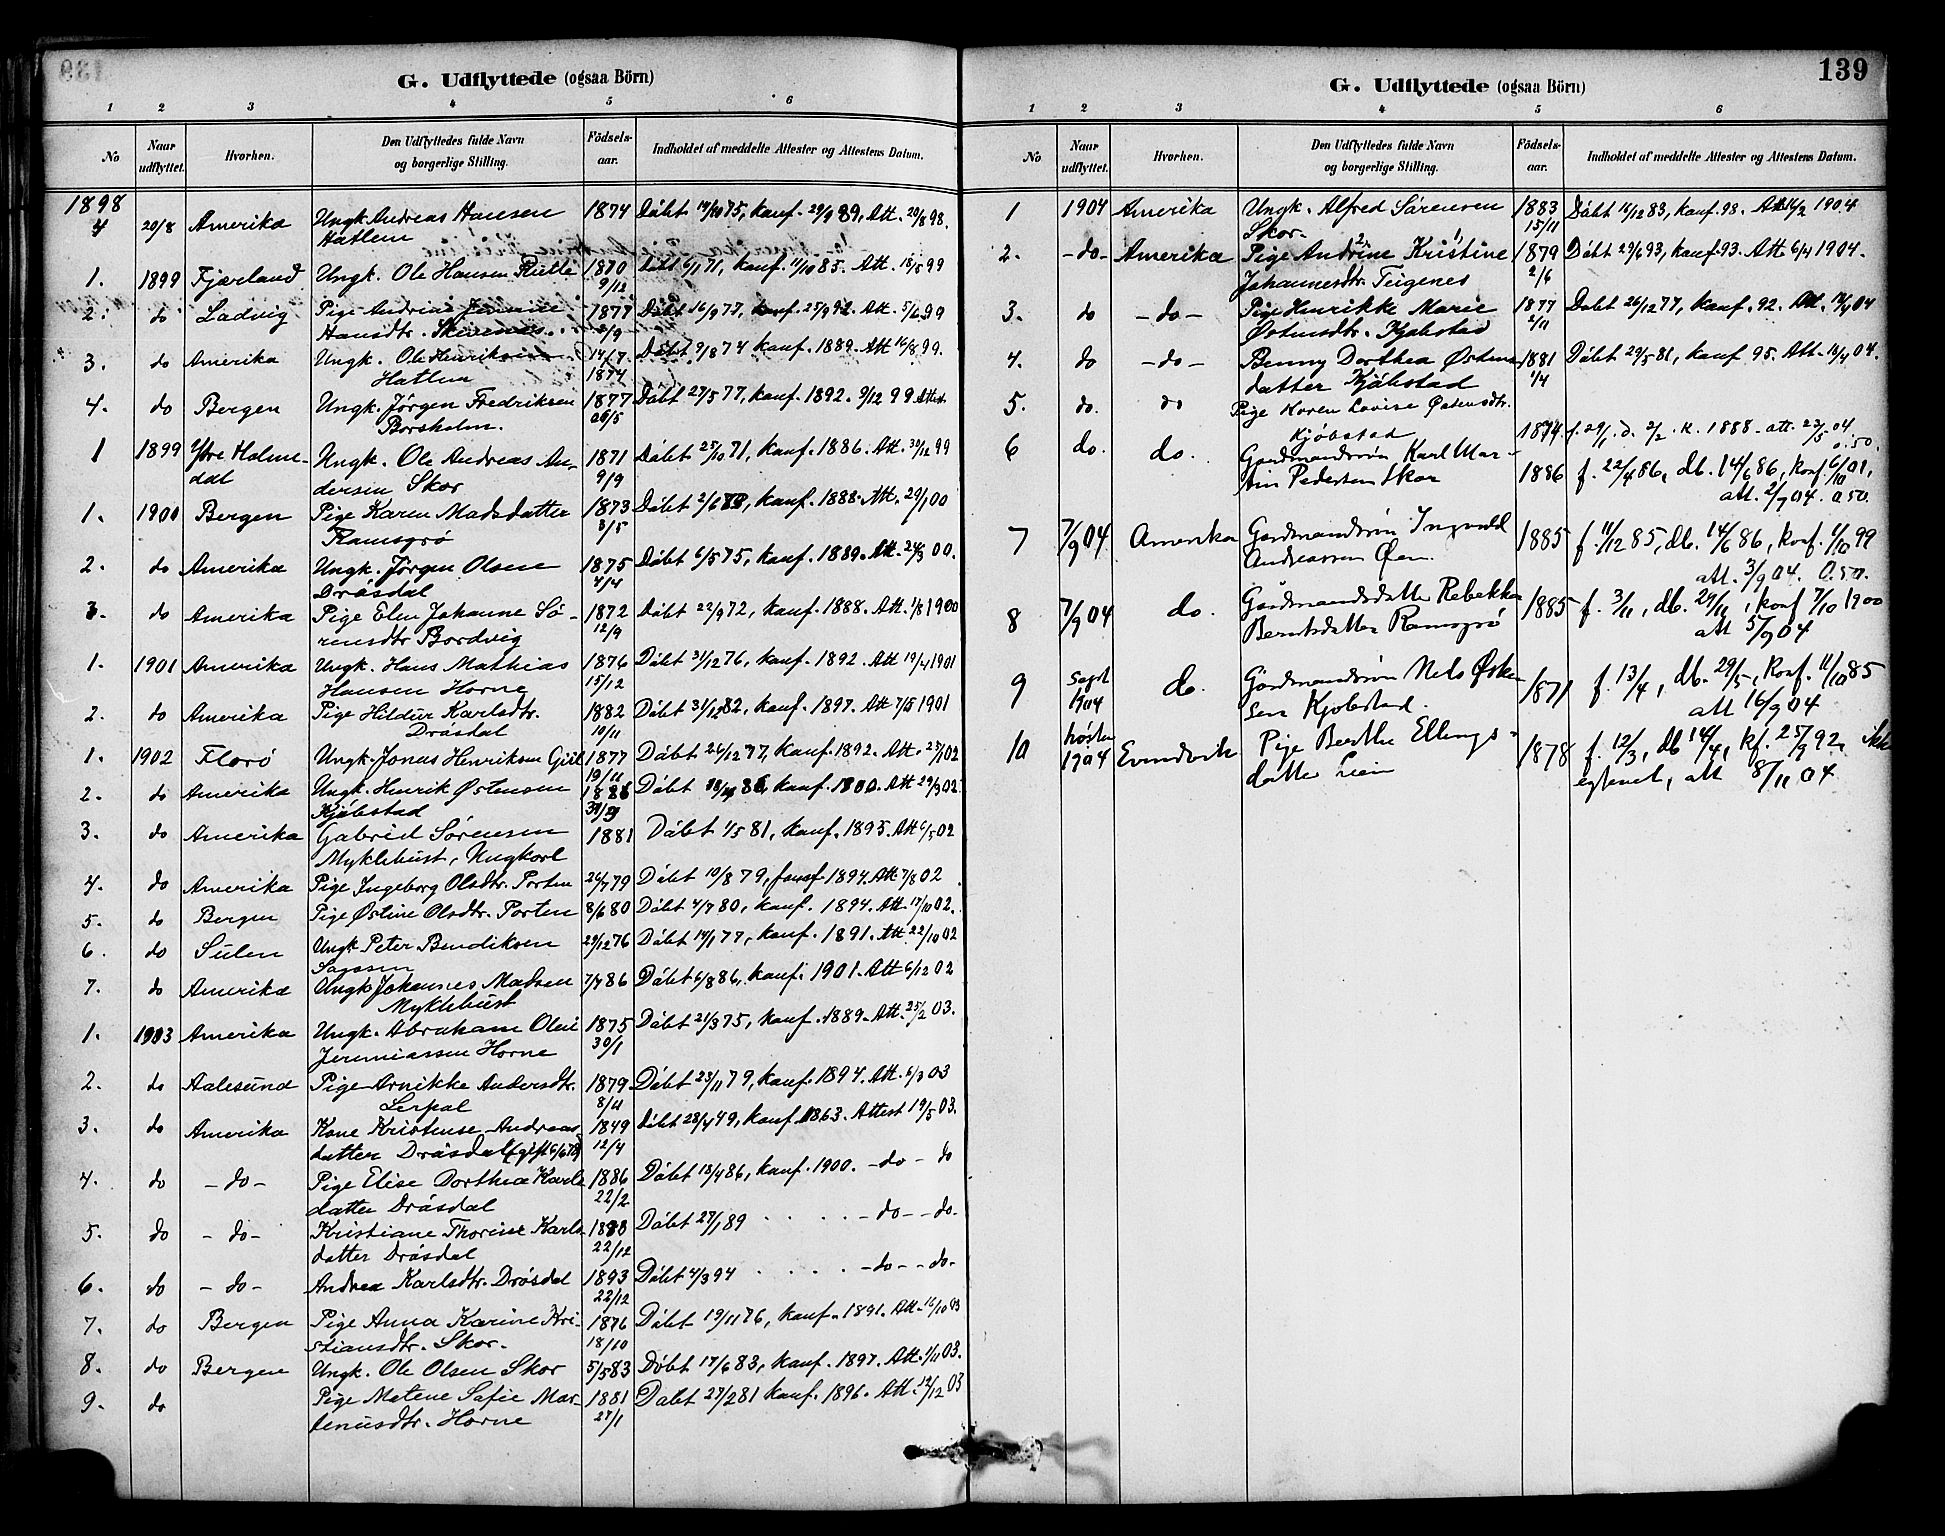 G. Udflyttede (ogsaa Börn)
1 2 3 4 5 6
No
Naar udflyttet.
Hvorhen.
Den Udflyttedes fulde Navn
og borgerlige Stilling.
Födsels-
aar.
Indholdet af meddelte Attester og Attestens Datum.
1898
4 20/8 Amerika Ungk. Andreas Hansen 1874 Döbt 19/10 75, kauf. 29/9 89, Att. 20/8 98.
Hatlem
1. 1899 Fjærland Ungk. Ole Hansen 1870 Döbt 6/1 71, kauf. 11/10 85. Att. 18/5 99
9/12
2. do Ladvig Pige Andrine 1877 Döbt 16/9 77, kauf. 25/9 92. Att. 5/6 99
Hansdtr.
3. do Amerika Ungk. Ole Henriksen 14/7 Döbt 9/8 74 kauf. 1889. Att 16/8 99.
Hatlem 1874
4. do Bergen Ungk. Jörgen Fredriksen 1877 Döbt 27/5 77, kauf. 1892. 9/12 99 Attest
Borsholm. 26/5
1 1899 Ytre Holme- Ungk. Ole Andreas An- 1871 Döbt 25/10 71, kauf. 1886. Att. 30/12 99
dal dersen Skor 9/9
1. 1900 Bergen Pige Karen Madsdatter 1873 Döbt 2/6 73, kauf. 1888. Att. 29/1 00
Ramsgrö 3/5
2. do Amerika Ungk. Jörgen Olsen 1875 Döbt 6/5 75, kauf. 1889. Att. 24/3 00.
Drösdal 4/4
3. do Amerika Pige Elen Johanne Sö- 1872 Döbt 22/9 72, kauf. 1888. Att. 1/8 1900
rensdtr Bordvig 12/9
1. 1901 Amerika Ungk. Hans Mathias 1876 Döbt 31/12 76, kauf. 1892. Att 19/4 1901
Hansen Horne 15/12
2. do Amerika Pige Hildur Karlsdtr. 1882 Döbt 31/12 82, kauf. 1897. Att 7/5 1901
Drösdal 10/11
1. 1902 Florö Ungk. Jonas Henriksen 1877 Döbt 26/12 77, kauf. 1892. Att. 23/1 02
19/11
2. do Amerika Ungk. Henrik Østensen Döbt kauf. 1800. Att 29/3 02
Kjöbstad
3. do Amerika Gabriel Sörensen 1881 Döbt 1/5 81, kauf. 1895. Att 6/5 02
Myklebust, Ungkarl
4. do Amerika Pige Ingeborg Olsdtr. Porten 26/7 79 Döbt 10/8 79, konf 1894. Att 7/8 02
5. do Bergen Pige Østine Olsdtr. Porten 8/6 80 Döbt 4/7 80, kauf. 1894. Att. 17/10 02.
6. do Sulen Ungk Peter Bendiksen 29/12 76 Döbt 14/1 77, kauf. 1891. Att 22/10 02
7. do Amerika Ungk Johannes Madsen 7/7 86 Döbt 6/8 86, kauf. 1901. Att 6/12 02
Myklebust
1. 1903 Amerika Ungk. Abraham Olai 1875 Döbt 21/3 75, kauf. 1889. Att. 25/2 03.
Jeremiassen Horne 30/1
2. do Aalesund Pige Arnikke Andersdtr. 1879 Döbt 23/11 79, kauf. 1894. Att. 6/3 03
8/11
3. do Amerika Kone Kristense Andreas- 1849 Döbt 28/4 49, kauf. 1863. Attest 19/5 03.
datter Drösdal 12/4
4. do - do - Pige Elise Dorthea Karls 1886 Döbt 18/4 86, kauf. 1900. - do - do
datter Drösdal 22/2
5. do - do - Kristiane Thorine Karls- 1888 Döbt 27/1 89 . . . . - do - - do -
datter Drösdal 22/12
6. do - do - Andrea Karlsdtr. Drösdal 1893 Döbt 4/3 94 . . . . - do - - do -
22/12
7. do Bergen Pige Anna Karine Kri- 1876 Döbt 19/11 76, kauf. 1891. Att. 16/10 03
stiansdtr. Skor. 18/10
8. do Bergen Ungk. Ole Olsen Skor 5/5 83 Döbt 17/6 83, kauf. 1897. Att. 1/11 03.
9. do Pige Metene Sofie Mar- 1881 Döbt 27/2 81 kauf. 1896. Att. 12/12 03
tinusdtr. Horne 27/1
139
G. Udflyttede (ogsaa Börn)
1 2 3 4 5 6
No
Naar udflyttet.
Hvorhen.
Den Udflyttedes fulde Navn
og borgerlige Stilling.
Födsels-
aar.
Indholdet af meddelte Attester og Attestens Datum.
1 1904 Amerika Ungk. Alfred Sörensen 1883 Döbt 16/12 83, kauf. 98. Att 16/2 1904
Skor. 15/11
2. - do - Amerika Pige Andrine Kristine 1879 Döbt 29/6 93, kauf. 93. Att 6/4 1904.
Johannesdtr Teigenes 2/6
3. do - do - Pige Henrikke Marie 1877 Döbt 26/12 77, kauf. 92. Att. 14/4 04
Østensdtr. Kjöbstad 2/11
4. do - do - Benny Dorthea Østens 1881 Döbt 29/5 81, kauf 95. Att. 14/4 04.
datter Kjöbstad 1/4
5. do. do Pige Karen Lovise Østensdtr.
Kjöbstad 1874 f. 29/1. d. 2/2. k. 1888. att. 23/5 04
0.50.
6 do. do. Gaardmandssön Karl Mar-
tin Pedersen Skor 1886 f. 22/4 86, db. 14/6 86, konf 6/10 01,
att. 2/9 04. 0.50.
7 7/9 04 Amerika Gaardmandssön Ingvald 1885 f. 11/12 85, db. 14/6 86, konf. 1/10 99
Andreassen Øen. att. 3/9 04. 0.50.
8 7/9 04 do. Gaardmandsdatter Rebekka 1885 f. 3/11, db. 29/11, konf 7/10 1900
Berntsdatter Ramsgrö att 5/9 04
9 Sept 1904 do. Gaardmandssön Nils Østen- 1871 f. 13/4, db. 29/5, konf. 11/10 85
sen Kjobstad. att 16/9 04
10 høsten 1904 Evindvik Pige Berthe Ellings- 1878 f. 12/3, db 14/4, kf. 25/9 92. Ikke
datter Lien egtevet, att 8/11 04